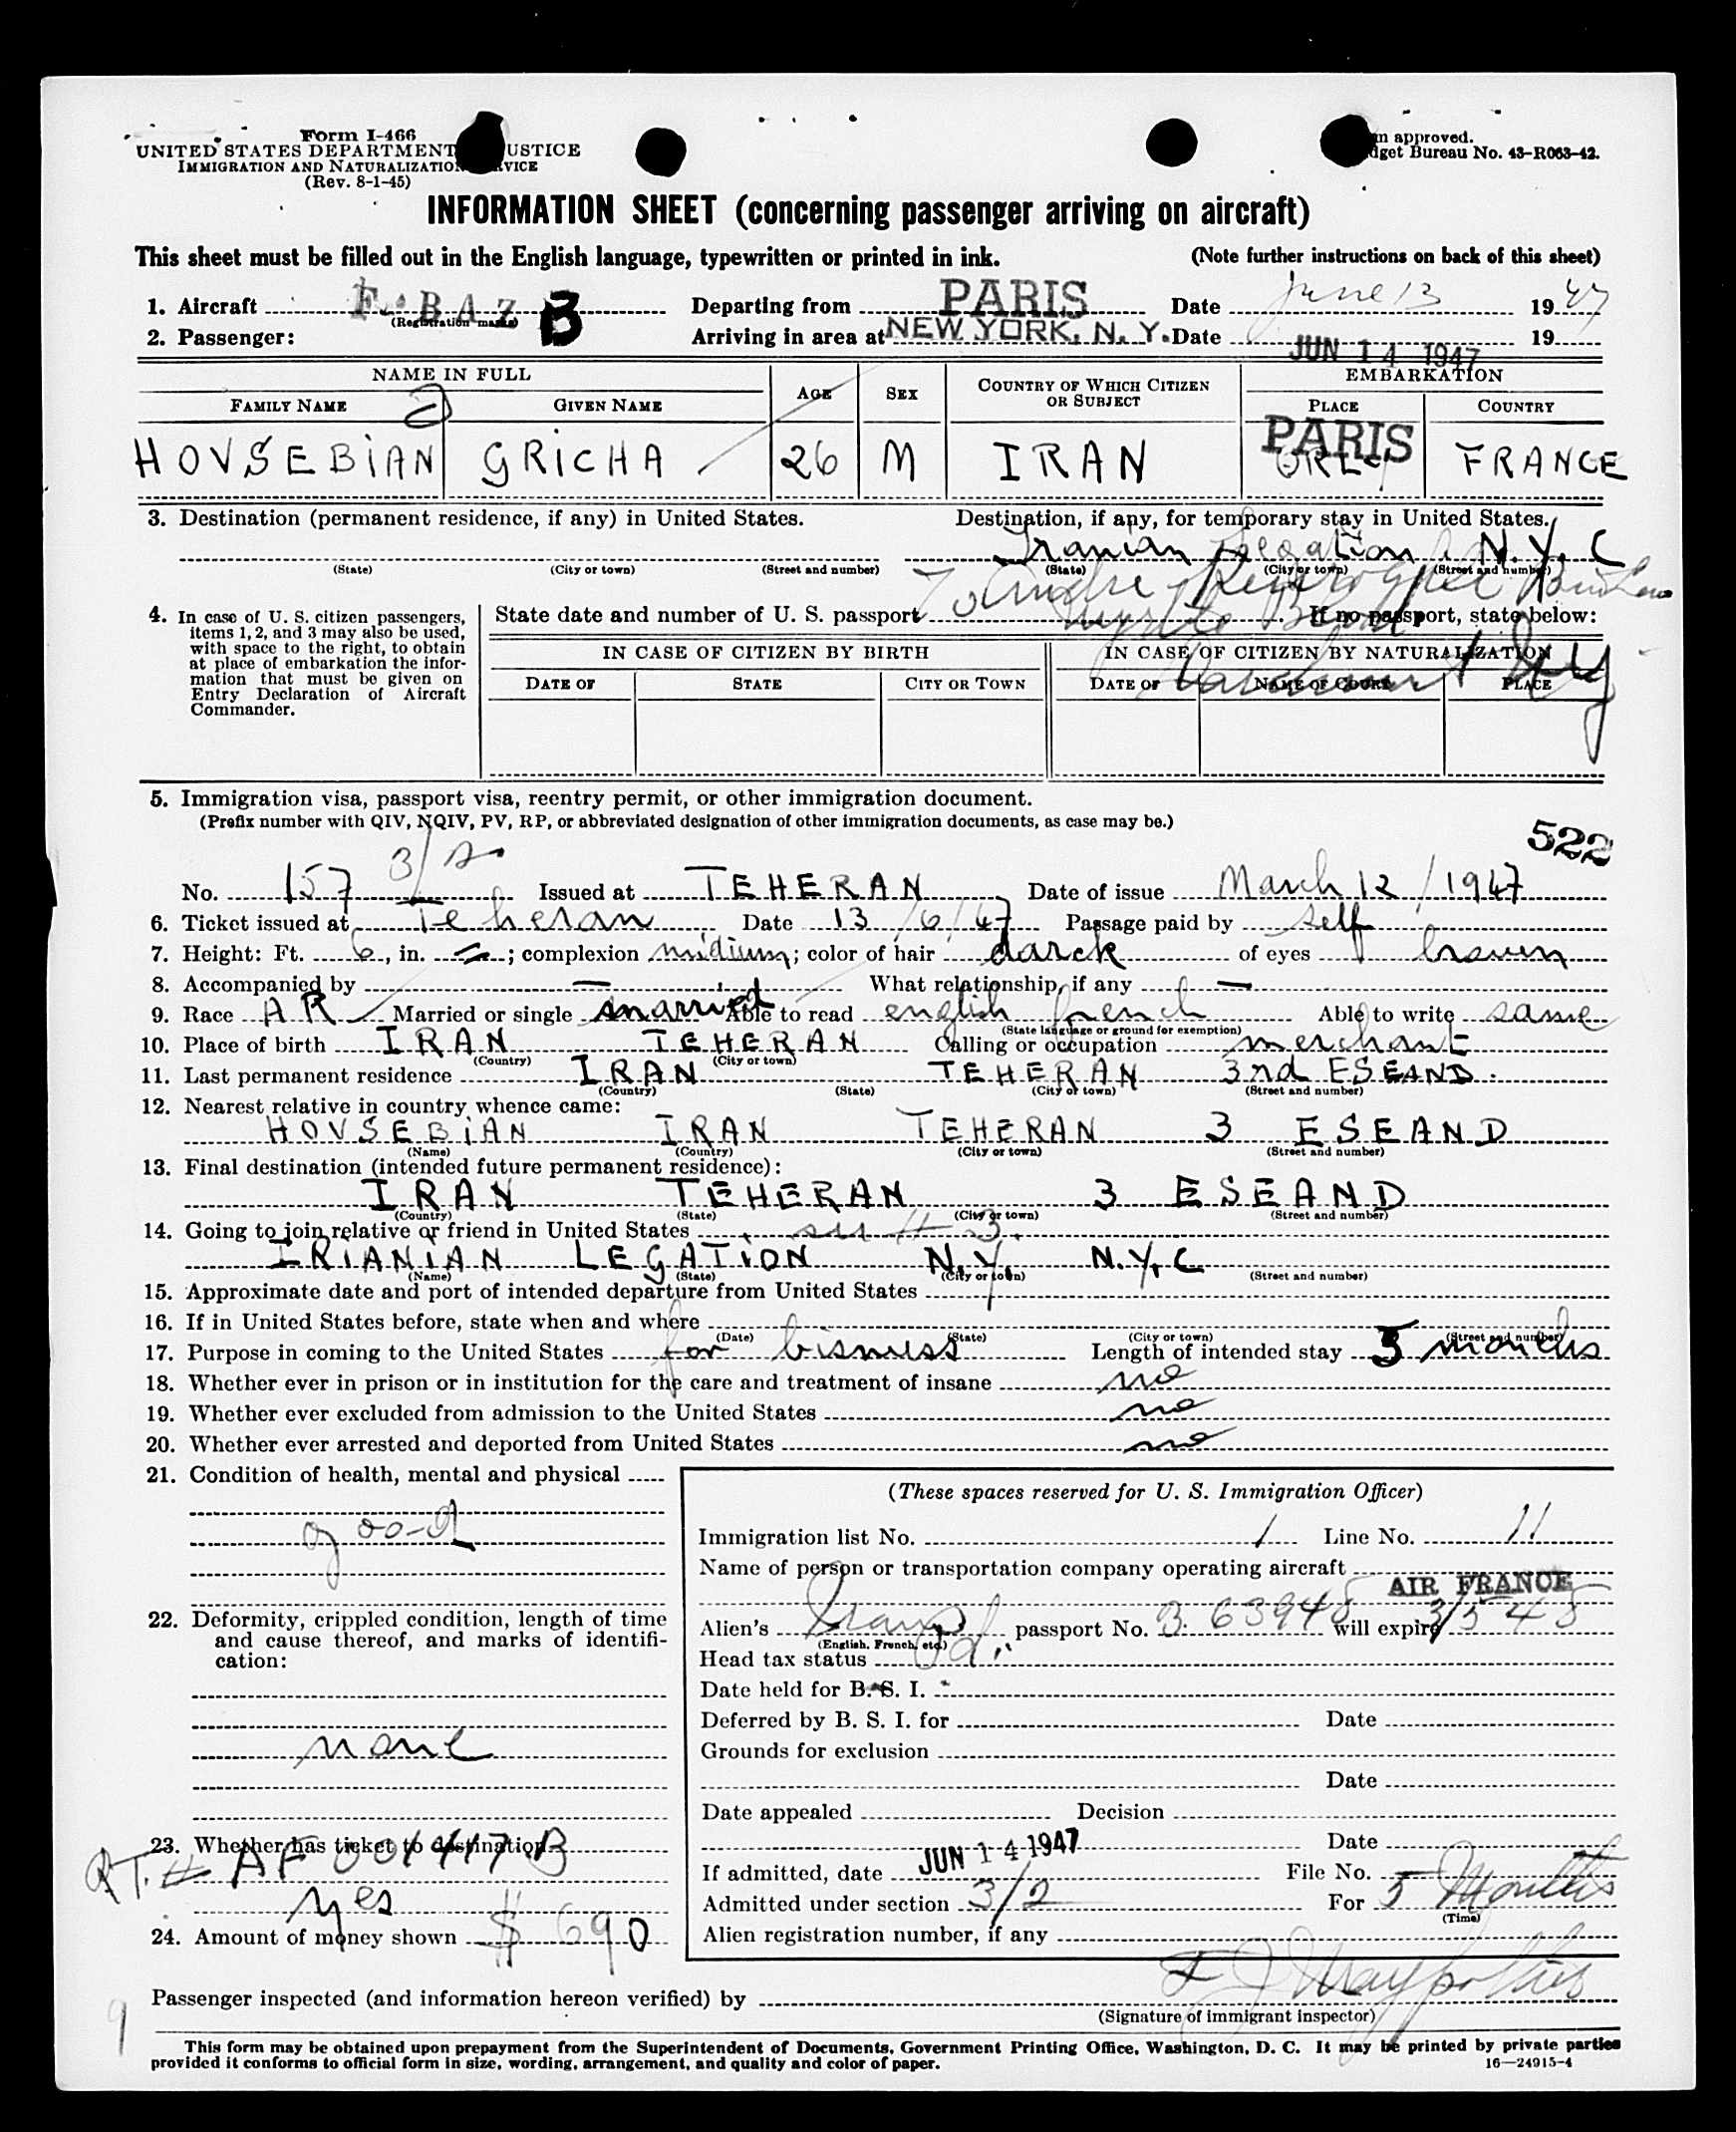 Form I-466
UNITED STATES DEPARTMENT USTICE
IMMIGRATION AND NATURALIZATION VICE
(Rev. 8-1-45)
m approved.
dget Bureau No. 43-R063-42.
INFORMATION SHEET (concerning passenger arriving on aircraft)
This sheet must be filled out in the English language, typewritten or printed in ink. (Note further instructions on back of this sheet)
1. Aircraft F-BAZB (Registration marks) Departing from PARIS Date June 13 1947
2. Passenger: Arriving in area at NEW YORK, N. Y. Date JUN 14 1947 19
NAME IN FULL AGE SEX COUNTRY OF WHICH CITIZEN OR SUBJECT EMBARKATION
FAMILY NAME GIVEN NAME PLACE COUNTRY
HOVSEBIAN GRICHA 26 M IRAN PARIS ORLY FRANCE
3. Destination (permanent residence, if any) in United States. Destination, if any, for temporary stay in United States.
Iranian Legation N.Y.C
(State) (City or town) (Street and number) (State) (City or town) (Street and number)
4. In case of U. S. citizen passengers, items 1, 2, and 3 may also be used, with space to the right, to obtain at place of embarkation the information that must be given on Entry Declaration of Aircraft Commander.
State date and number of U. S. passport If no passport, state below:
IN CASE OF CITIZEN BY BIRTH IN CASE OF CITIZEN BY NATURALIZATION
DATE OF STATE CITY OR TOWN DATE OF NAME OF COURT PLACE
5. Immigration visa, passport visa, reentry permit, or other immigration document.
(Prefix number with QIV, NQIV, PV, RP, or abbreviated designation of other immigration documents, as case may be.)
522
3/2
No. 157 Issued at TEHERAN Date of issue March 12 / 1947
6. Ticket issued at Teheran Date 13/6/47 Passage paid by self
7. Height: Ft. 6, in. –; complexion midium; color of hair darck of eyes brown
8. Accompanied by — What relationship, if any —
9. Race AR Married or single married Able to read english french Able to write same
(State language or ground for exemption)
10. Place of birth IRAN TEHERAN Calling or occupation merchant
(Country) (City or town)
11. Last permanent residence IRAN TEHERAN 3nd ESEAND.
(Country) (State) (City or town) (Street and number)
12. Nearest relative in country whence came:
HOVSEBIAN IRAN TEHERAN 3 ESEAND
(Name) (Country) (City or town) (Street and number)
13. Final destination (intended future permanent residence):
IRAN TEHERAN 3 ESEAND
(Country) (State) (City or town) (Street and number)
14. Going to join relative or friend in United States see # 3.
IRIANIAN LEGATION N.Y. N.Y.C
(Name) (State) (City or town) (Street and number)
15. Approximate date and port of intended departure from United States
16. If in United States before, state when and where
(Date) (State) (City or town) (Street and number)
17. Purpose in coming to the United States for bisness Length of intended stay 5 months
18. Whether ever in prison or in institution for the care and treatment of insane no
19. Whether ever excluded from admission to the United States no
20. Whether ever arrested and deported from United States no
21. Condition of health, mental and physical
good
22. Deformity, crippled condition, length of time and cause thereof, and marks of identification:
none
23. Whether has ticket to destination
RT.# AF 001417 B
yes
24. Amount of money shown $ 690
(These spaces reserved for U. S. Immigration Officer)
Immigration list No. 1 Line No. 11
Name of person or transportation company operating aircraft
AIR FRANCE
Alien's Iran passport No. B 63948 will expire 3/5 48
(English, French, etc.)
Head tax status Pd.
Date held for B. S. I.
Deferred by B. S. I. for Date
Grounds for exclusion
Date
Date appealed Decision
Date
If admitted, date JUN 14 1947 File No.
Admitted under section 3/2 For 5 Months
(Time)
Alien registration number, if any
Passenger inspected (and information hereon verified) by
(Signature of immigrant inspector)
9
This form may be obtained upon prepayment from the Superintendent of Documents, Government Printing Office, Washington, D. C. It may be printed by private parties
provided it conforms to official form in size, wording, arrangement, and quality and color of paper. 16—24915-4